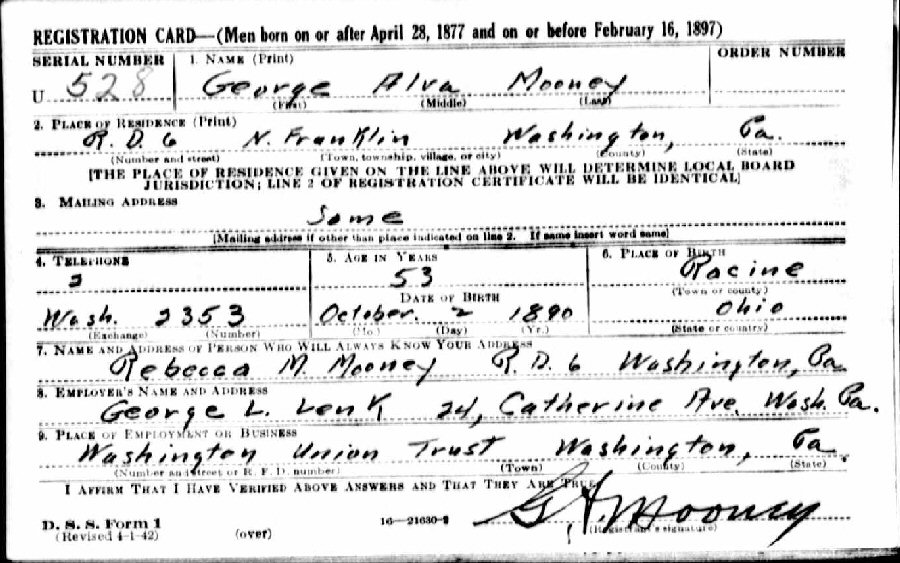 REGISTRATION CARD—(Men born on or after April 28, 1877 and on or before February 16, 1897)
SERIAL NUMBER 1. NAME (Print) ORDER NUMBER
U 528 George Alva Mooney
(First) (Middle) (Last)
2. PLACE OF RESIDENCE (Print)
R. D. 6 N. Franklin Washington, Pa.
(Number and street) (Town, township, village, or city) (County) (State)
[THE PLACE OF RESIDENCE GIVEN ON THE LINE ABOVE WILL DETERMINE LOCAL BOARD
JURISDICTION; LINE 2 OF REGISTRATION CERTIFICATE WILL BE IDENTICAL]
3. MAILING ADDRESS
Same
[Mailing address if other than place indicated on line 2. If same insert word same]
4. TELEPHONE 5. AGE IN YEARS 6. PLACE OF BIRTH
53 Racine
DATE OF BIRTH (Town or county)
Wash. 2353 October. 2 1890 Ohio
(Exchange) (Number) (Mo.) (Day) (Yr.) (State or country)
7. NAME AND ADDRESS OF PERSON WHO WILL ALWAYS KNOW YOUR ADDRESS
Rebecca M. Mooney R. D. 6 Washington, Pa.
8. EMPLOYER'S NAME AND ADDRESS
George L. Lenk 24, Catherine Ave. Wash. Pa.
9. PLACE OF EMPLOYMENT OR BUSINESS
Washington Union Trust Washington, Pa.
(Number and street or R. F. D. number) (Town) (County) (State)
I AFFIRM THAT I HAVE VERIFIED ABOVE ANSWERS AND THAT THEY ARE TRUE.
D. S. S. Form 1
(Revised 4-1-42) (over) 16—21630-2 G A Mooney
(Registrant's signature)